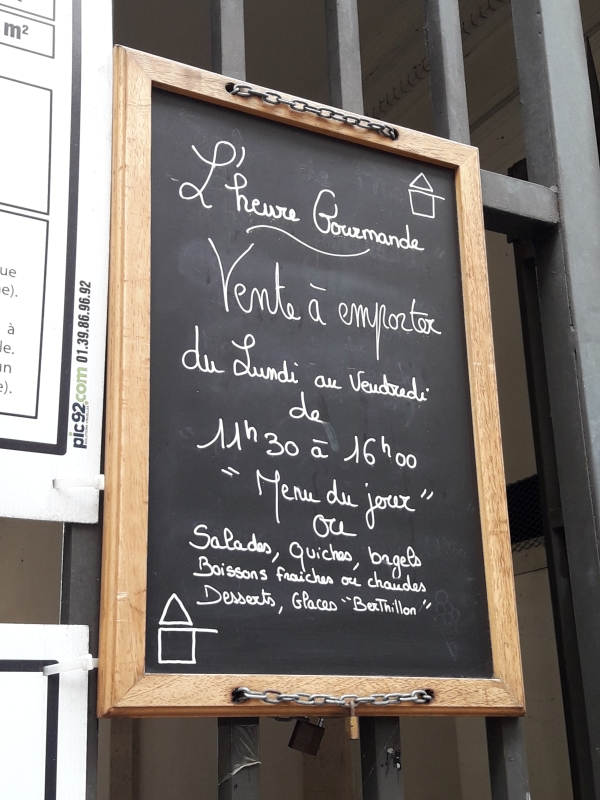 m²
ue
e).
à
de.
un
e).
pic92com 01.39.86.96.92
L'heure Gourmande
Vente à emporter
du Lundi au Vendredi
de
11h30 à 16h00
"Menu du jour"
ou
Salades, quiches, bagels
Boissons fraîches ou chaudes
Desserts, Glaces "Berthillon"